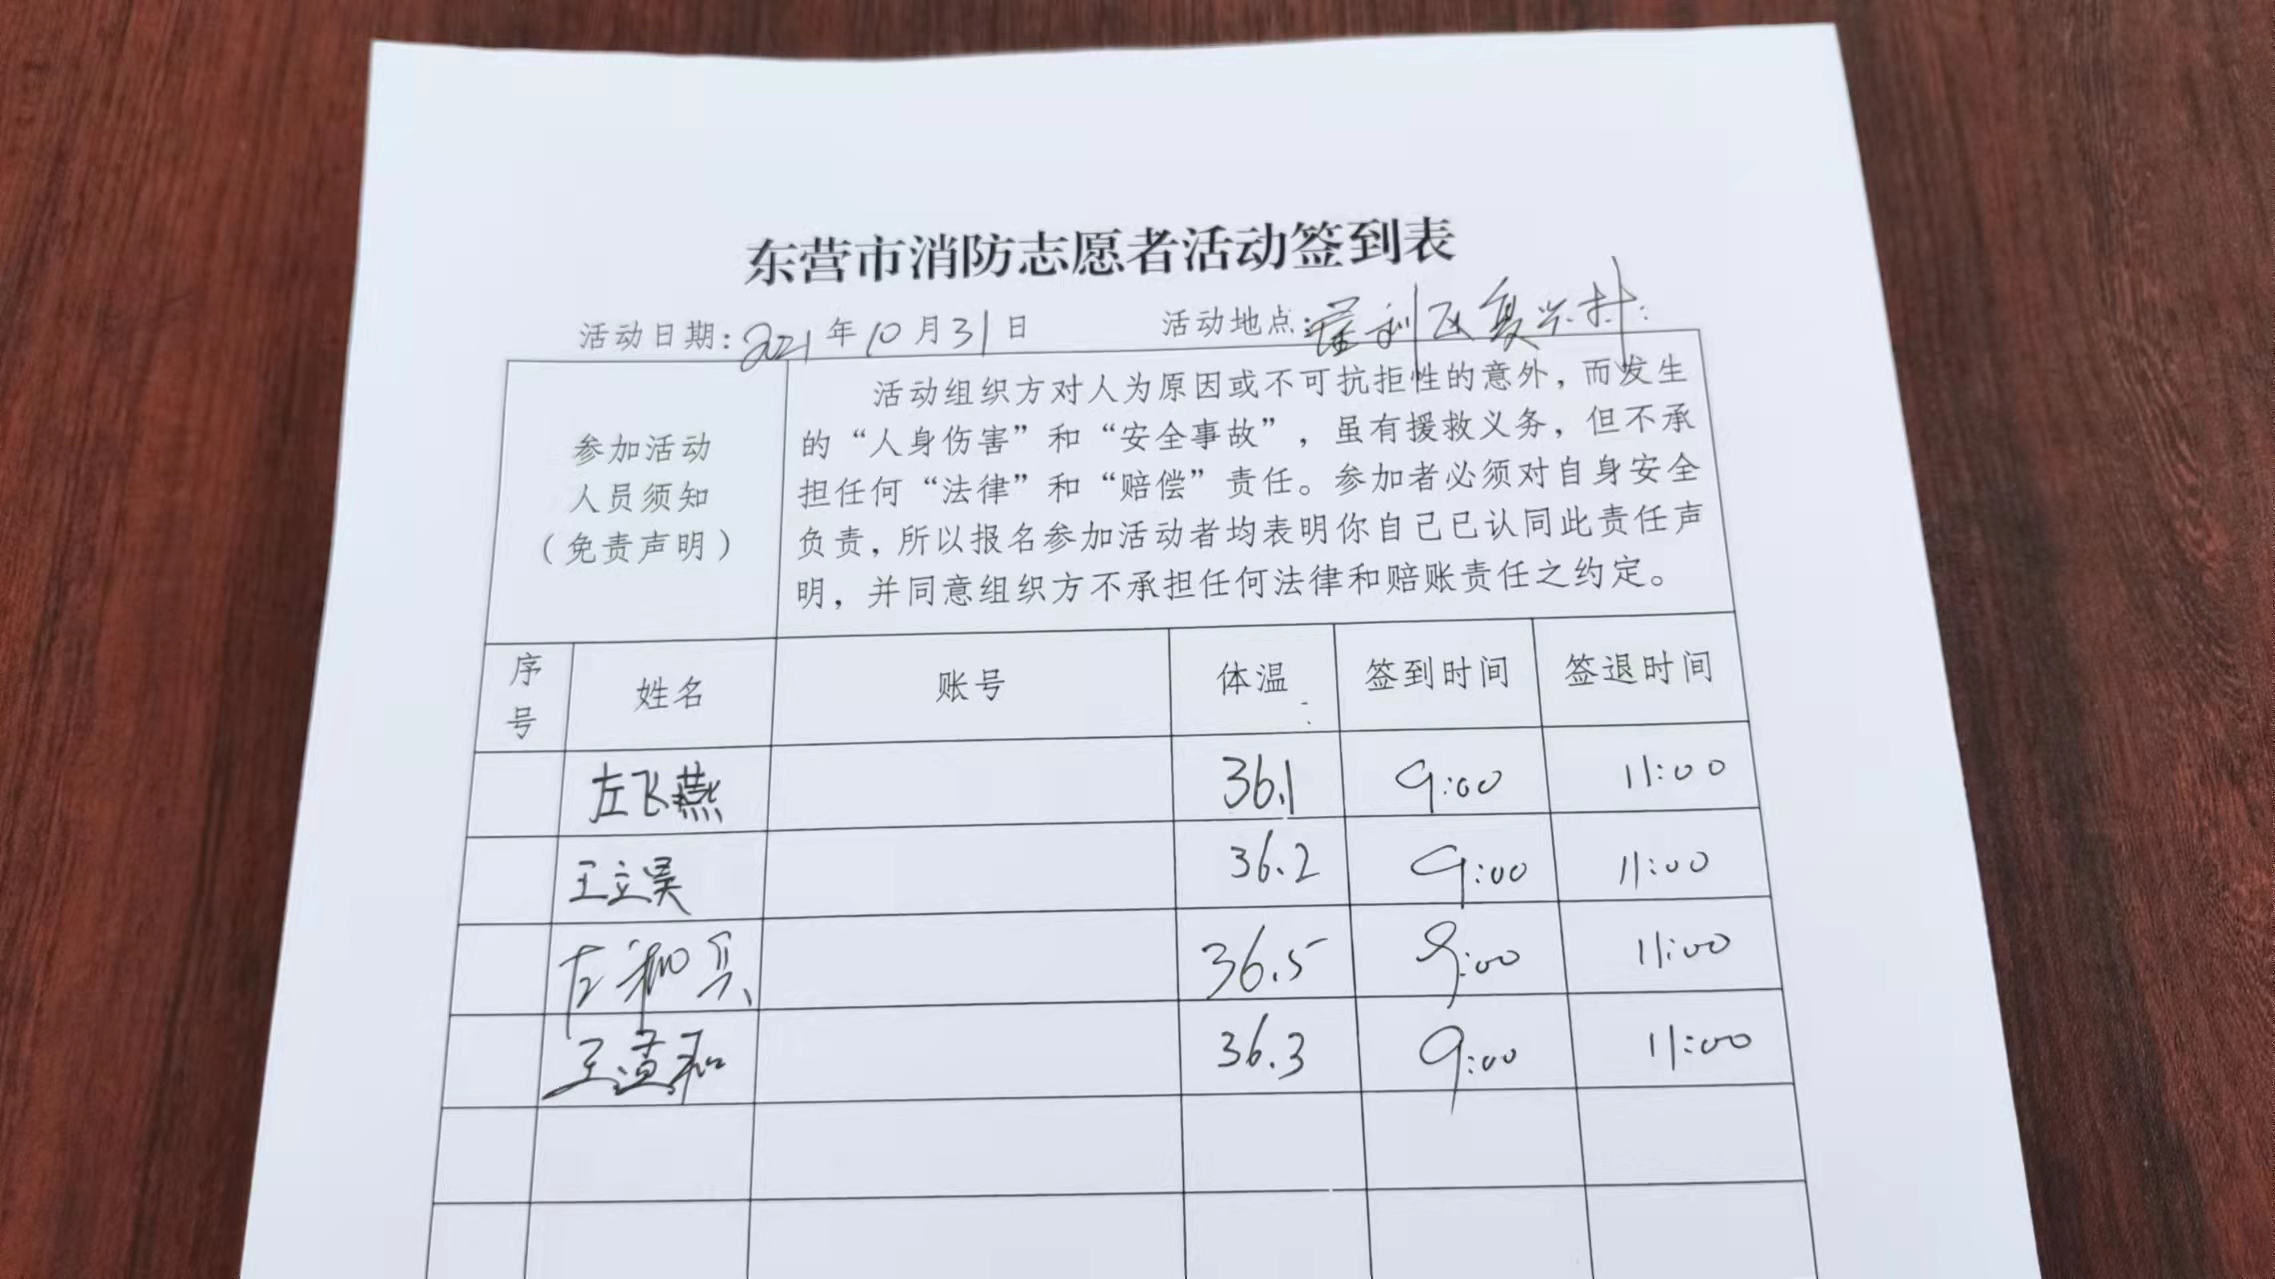 东营市消防志愿者活动签到表
活动日期：2021年10月31日 活动地点：垦利区复兴村
参加活动
人员须知
（免责声明）
活动组织方对人为原因或不可抗拒性的意外，而发生
的“人身伤害”和“安全事故”，虽有援救义务，但不承
担任何“法律”和“赔偿”责任。参加者必须对自身安全
负责，所以报名参加活动者均表明你自己已认同此责任声
明，并同意组织方不承担任何法律和赔账责任之约定。
序号 姓名 账号 体温 签到时间 签退时间
左飞燕 36.1 9:00 11:00
王立昊 36.2 9:00 11:00
左 36.5 9:00 11:00
王 36.3 9:00 11:00